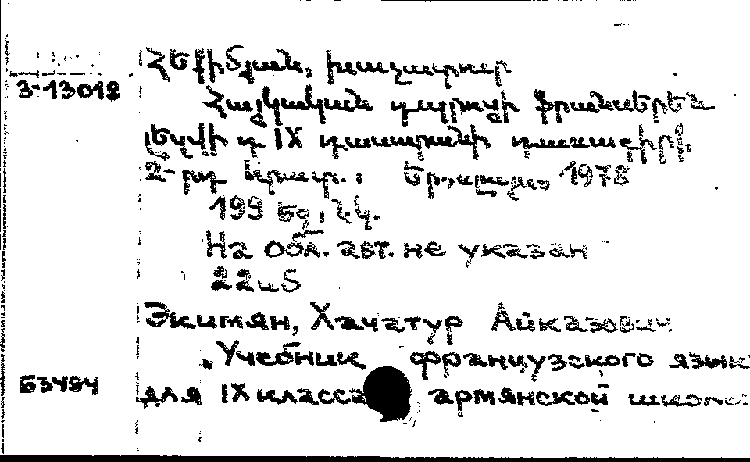 3-13018
Հեքիմյան, Խաչատուր
Հայկական դպրոցի ֆրանսերեն
լեզվի IX դասարանի դասագիրք.
2-րդ հրատ.: Երևան, 1978
199 էջ, նկ.
На обл. авт. не указан
22ш5
Экимян, Хачатур Айказович
Учебник французского язык
для IX класса армянской школы
63494